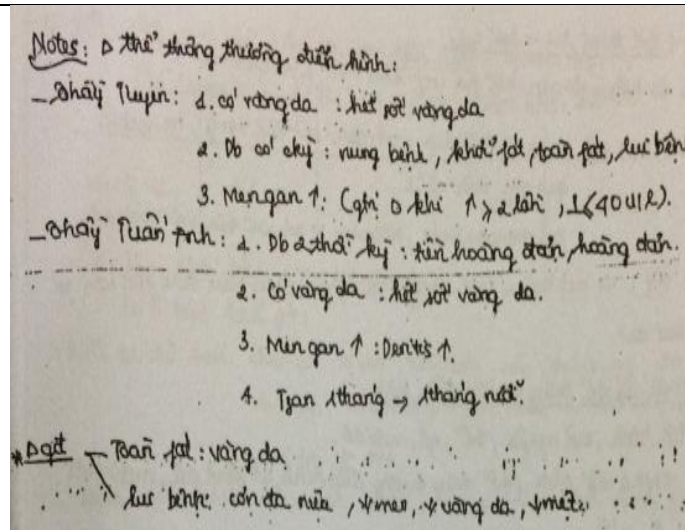 Notes: Δ thể thông thường điển hình:
- Thầy Tuyên: 1. có vàng da : hết sốt vàng da
2. Db có ckỳ : nung bệnh, khởi fát, toàn fát, lui bệnh
3. Men gan ↑: (ghi Δ khi ↑ ≥ 2 lần, ⊥ ≤ 40 U/l).
- Thầy Tuấn Anh: 1. Db 2 thời kỳ : tiền hoàng đản, hoàng đản.
2. Có vàng da : hết sốt vàng da.
3. Men gan ↑ :
4. Tgan 1 tháng → 1 tháng rưỡi.
* Δgđ - Toàn fát : vàng da
lui bệnh: còn da, ↓ men, ↓ vàng da, ↓ mệt